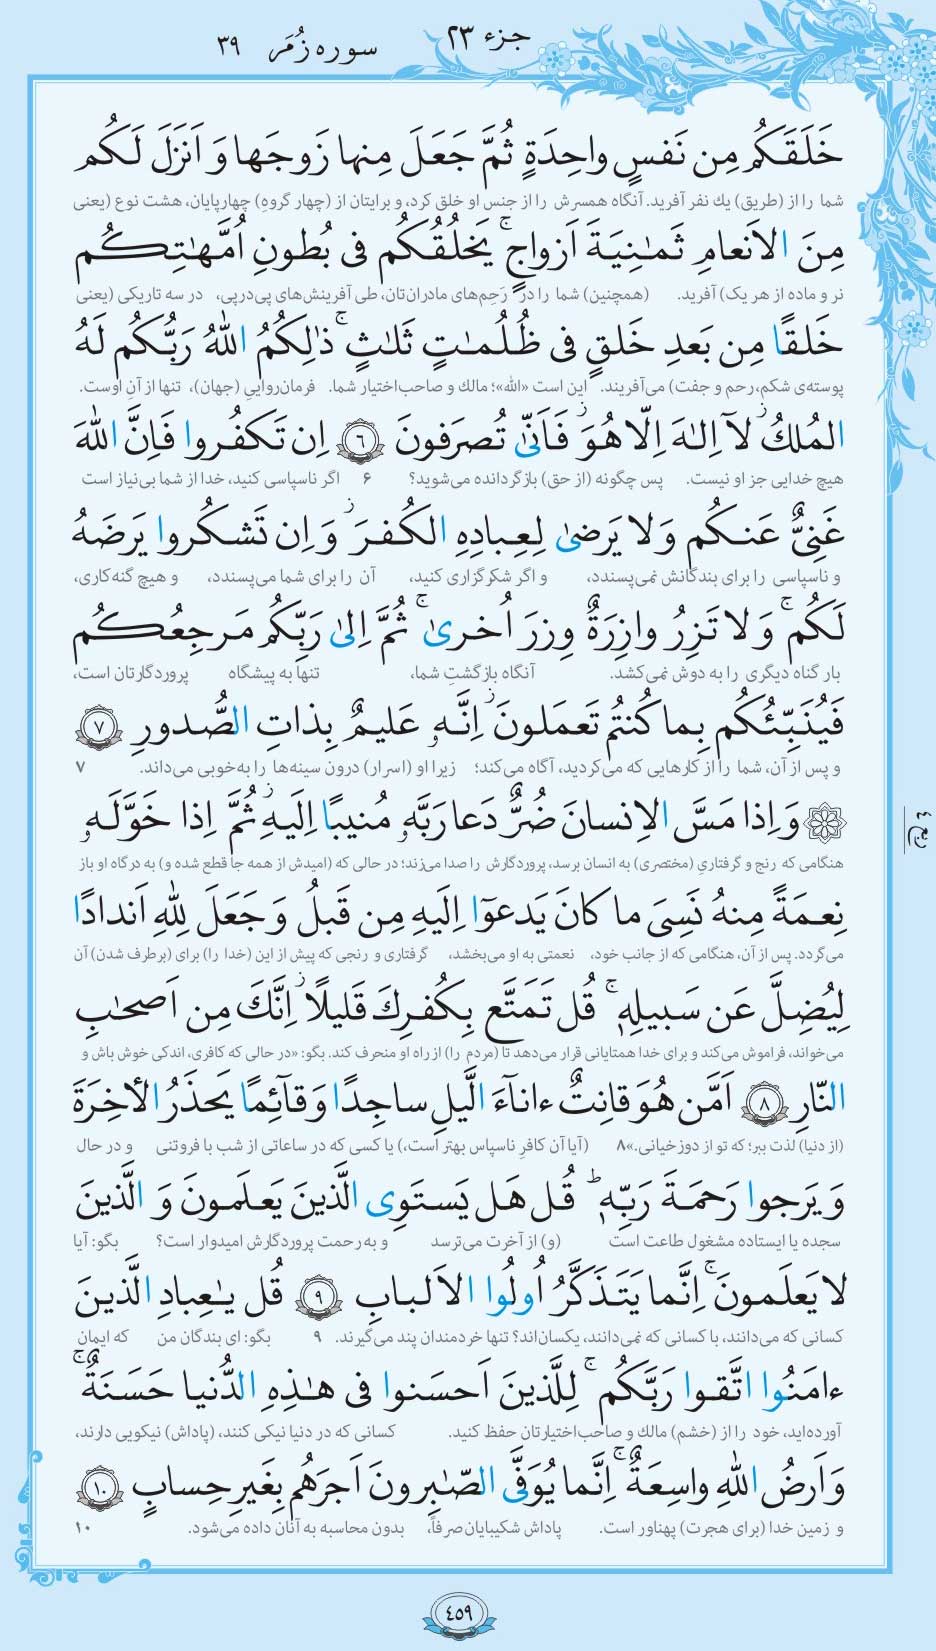 جزء ٢٣
سوره زُمَر ٣٩
خَلَقَكُم مِن نَفسٍ واحِدَةٍ ثُمَّ جَعَلَ مِنها زَوجَها وَ اَنزَلَ لَكُم
شما را از (طریق) یك نفر آفرید. آنگاه همسرش را از جنس او خلق کرد، و برایتان از (چهار گروهِ) چهارپایان، هشت نوع (یعنی
مِنَ الاَنعامِ ثَمـٰنِيَةَ اَزواجٍ ۚ يَخلُقُكُم فى بُطونِ اُمَّهـٰتِكُم
نر و ماده از هر یک) آفرید. (همچنین) شما را در رَحِم‌های مادران‌تان، طی آفرینش‌های پی‌درپی، در سه تاریکی (یعنی
خَلقًا مِن بَعدِ خَلقٍ فى ظُلُمـٰتٍ ثَلـٰثٍ ۚ ذٰلِكُمُ اللهُ رَبُّكُم لَهُ
پوسته‌ی شکم، رحم و جفت) می‌آفریند. این است «الله»؛ مالك و صاحب‌اختیار شما. فرمان‌رواییِ (جهان)، تنها از آنِ اوست.
المُلكُ ۖ لآ اِلـٰهَ اِلّا هُوَ ۖ فَاَنّىٰ تُصرَفونَ ﴿٦﴾ اِن تَكفُروا فَاِنَّ اللهَ
هیچ خدایی جز او نیست. پس چگونه (از حق) بازگردانده می‌شوید؟ ۶ اگر ناسپاسی کنید، خدا از شما بی‌نیاز است
غَنِىٌّ عَنكُم وَلا يَرضىٰ لِعِبادِهِ الكُفرَ ۖ وَ اِن تَشكُروا يَرضَهُ
و ناسپاسی را برای بندگانش نمی‌پسندد، و اگر شکرگزاری کنید، آن را برای شما می‌پسندد، و هیچ گنه‌کاری،
لَكُم ۚ وَلا تَزِرُ وازِرَةٌ وِزرَ اُخرىٰ ۚ ثُمَّ اِلىٰ رَبِّكُم مَرجِعُكُم
بار گناه دیگری را به دوش نمی‌کشد. آنگاه بازگشتِ شما، تنها به پیشگاه پروردگارتان است،
فَيُنَبِّئُكُم بِما كُنتُم تَعمَلونَ ۖ اِنَّهو عَليمٌ بِذاتِ الصُّدورِ ﴿٧﴾
و پس از آن، شما را از کارهایی که می‌کردید، آگاه می‌کند؛ زیرا او (اسرار) درون سینه‌ها را به‌خوبی می‌داند. ۷
وَ اِذا مَسَّ الاِنسانَ ضُرٌّ دَعا رَبَّهو مُنيبًا اِلَيهِ ۖ ثُمَّ اِذا خَوَّلَهو
هنگامی که رنج و گرفتاریِ (مختصری) به انسان برسد، پروردگارش را صدا می‌زند؛ در حالی که (امیدش از همه جا قطع شده و) به درگاه او باز
ربع ٤
نِعمَةً مِنهُ نَسِىَ ما كانَ يَدعوٓا اِلَيهِ مِن قَبلُ وَ جَعَلَ لِلّٰهِ اَندادًا
می‌گردد. پس از آن، هنگامی که از جانب خود، نعمتی به او می‌بخشد، گرفتاری و رنجی که پیش از این (خدا را) برای (برطرف شدن) آن
لِيُضِلَّ عَن سَبيلِهٖ ۚ قُل تَمَتَّع بِكُفرِكَ قَليلًا ۖ اِنَّكَ مِن اَصحـٰبِ
می‌خواند، فراموش می‌کند و برای خدا همتایانی قرار می‌دهد تا (مردم را) از راه او منحرف کند. بگو: «در حالی که کافری، اندکی خوش باش و
النّارِ ﴿٨﴾ اَمَّن هُوَ قانِتٌ ءانآءَ الَّيلِ ساجِدًا وَ قآئِمًا يَحذَرُ الأخِرَةَ
(از دنیا) لذت ببر؛ که تو از دوزخیانی.» ۸ (آیا آن کافرِ ناسپاس بهتر است،) یا کسی که در ساعاتی از شب با فروتنی و در حال
وَ يَرجوا رَحمَةَ رَبِّهٖ ۗ قُل هَل يَستَوِى الَّذينَ يَعلَمونَ وَ الَّذينَ
سجده یا ایستاده مشغول طاعت است (و) از آخرت می‌ترسد و به رحمت پروردگارش امیدوار است؟ بگو: آیا
لا يَعلَمونَ ۚ اِنَّما يَتَذَكَّرُ اُولُوا الاَلبابِ ﴿٩﴾ قُل يـٰعِبادِ الَّذينَ
کسانی که می‌دانند، با کسانی که نمی‌دانند، یکسان‌اند؟ تنها خردمندان پند می‌گیرند. ۹ بگو: ای بندگان من که ایمان
ءامَنُوا اتَّقوا رَبَّكُم ۚ لِلَّذينَ اَحسَنوا فى هـٰذِهِ الدُّنيا حَسَنَةٌ ۗ
آورده‌اید، خود را از (خشم) مالك و صاحب‌اختیارتان حفظ کنید. کسانی که در دنیا نیکی کنند، (پاداش) نیکویی دارند،
وَ اَرضُ اللهِ واسِعَةٌ ۗ اِنَّما يُوَفَّى الصّـٰبِرونَ اَجرَهُم بِغَيرِ حِسابٍ ﴿١٠﴾
و زمین خدا (برای هجرت) پهناور است. پاداش شکیبایان صرفاً، بدون محاسبه به آنان داده می‌شود. ۱۰
٤٥٩